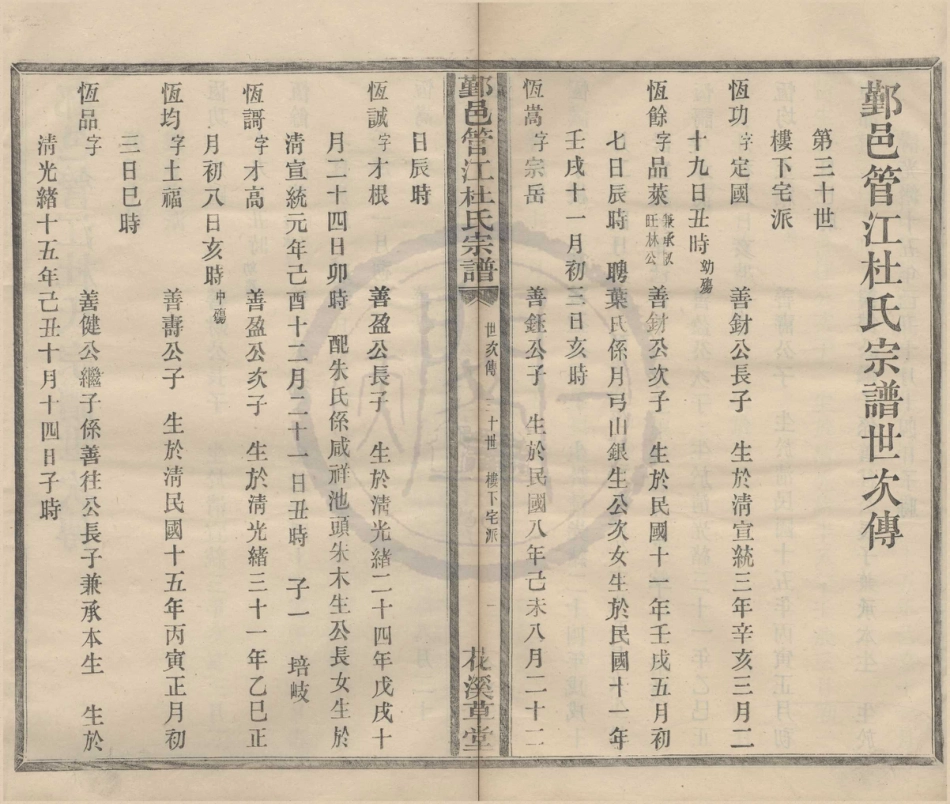 鄞邑管江杜氏宗譜世次傳
第三十世
樓下宅派
恆功字定國 善財公長子 生於清宣統三年辛亥三月二
十九日丑時幼殤
恆餘字品萊兼承叔旺林公 善財公次子 生於民國十一年壬戌五月初
七日辰時 聘葉氏係月弓山銀生公次女生於民國十一年
壬戌十一月初三日亥時
恆嵩字宗岳 善鈺公子 生於民國八年己未八月二十二
鄞邑管江杜氏宗譜 世次傳 三十世 樓下宅派 一 花溪草堂
日辰時
恆誠字才根 善盈公長子 生於清光緒二十四年戊戌十
月二十四日卯時 配朱氏係咸祥池頭朱木生公長女生於
清宣統元年己酉十二月二十一日丑時 子一 培岐
恆謌字才高 善盈公次子 生於清光緒三十一年乙巳正
月初八日亥時中殤
恆均字土福 善壽公子 生於清民國十五年丙寅正月初
三日巳時
恆品字 善健公繼子係善往公長子兼承本生 生於
清光緒十五年己丑十月十四日子時